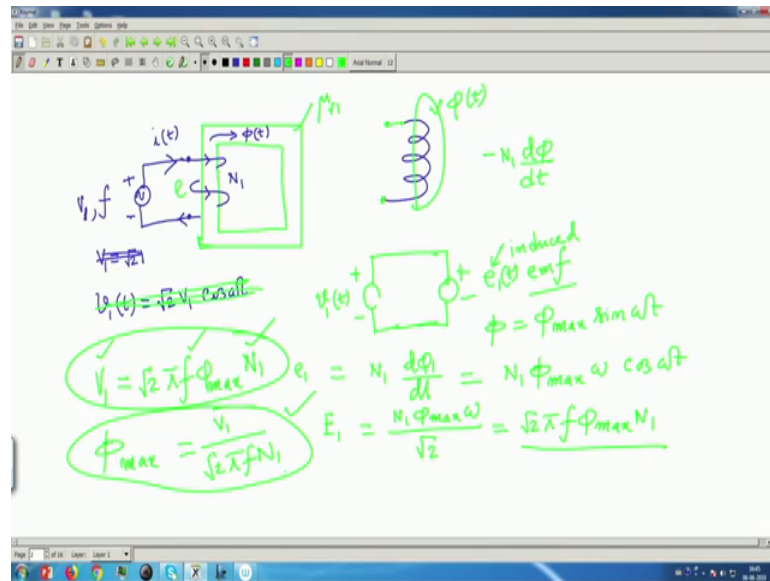 File Edit View Page Tools Options Help
Arial Normal 12
i(t)
φ(t)
μr1
φ(t)
+
e
N1
-N1 dφ/dt
V1, f
-
V1 = √2
v1(t) = √2 V1 cos ωt
induced
v1(t)
+
-
+
-
e1(t) emf
φ = φmax sin ωt
V1 = √2 π f φmax N1
e1 = N1 dφ1/dt = N1 φmax ω cos ωt
φmax = V1/√2 π f N1
E1 = N1 φmax ω/√2 = √2 π f φmax N1
Page 2 of 16 Layer: Layer 1